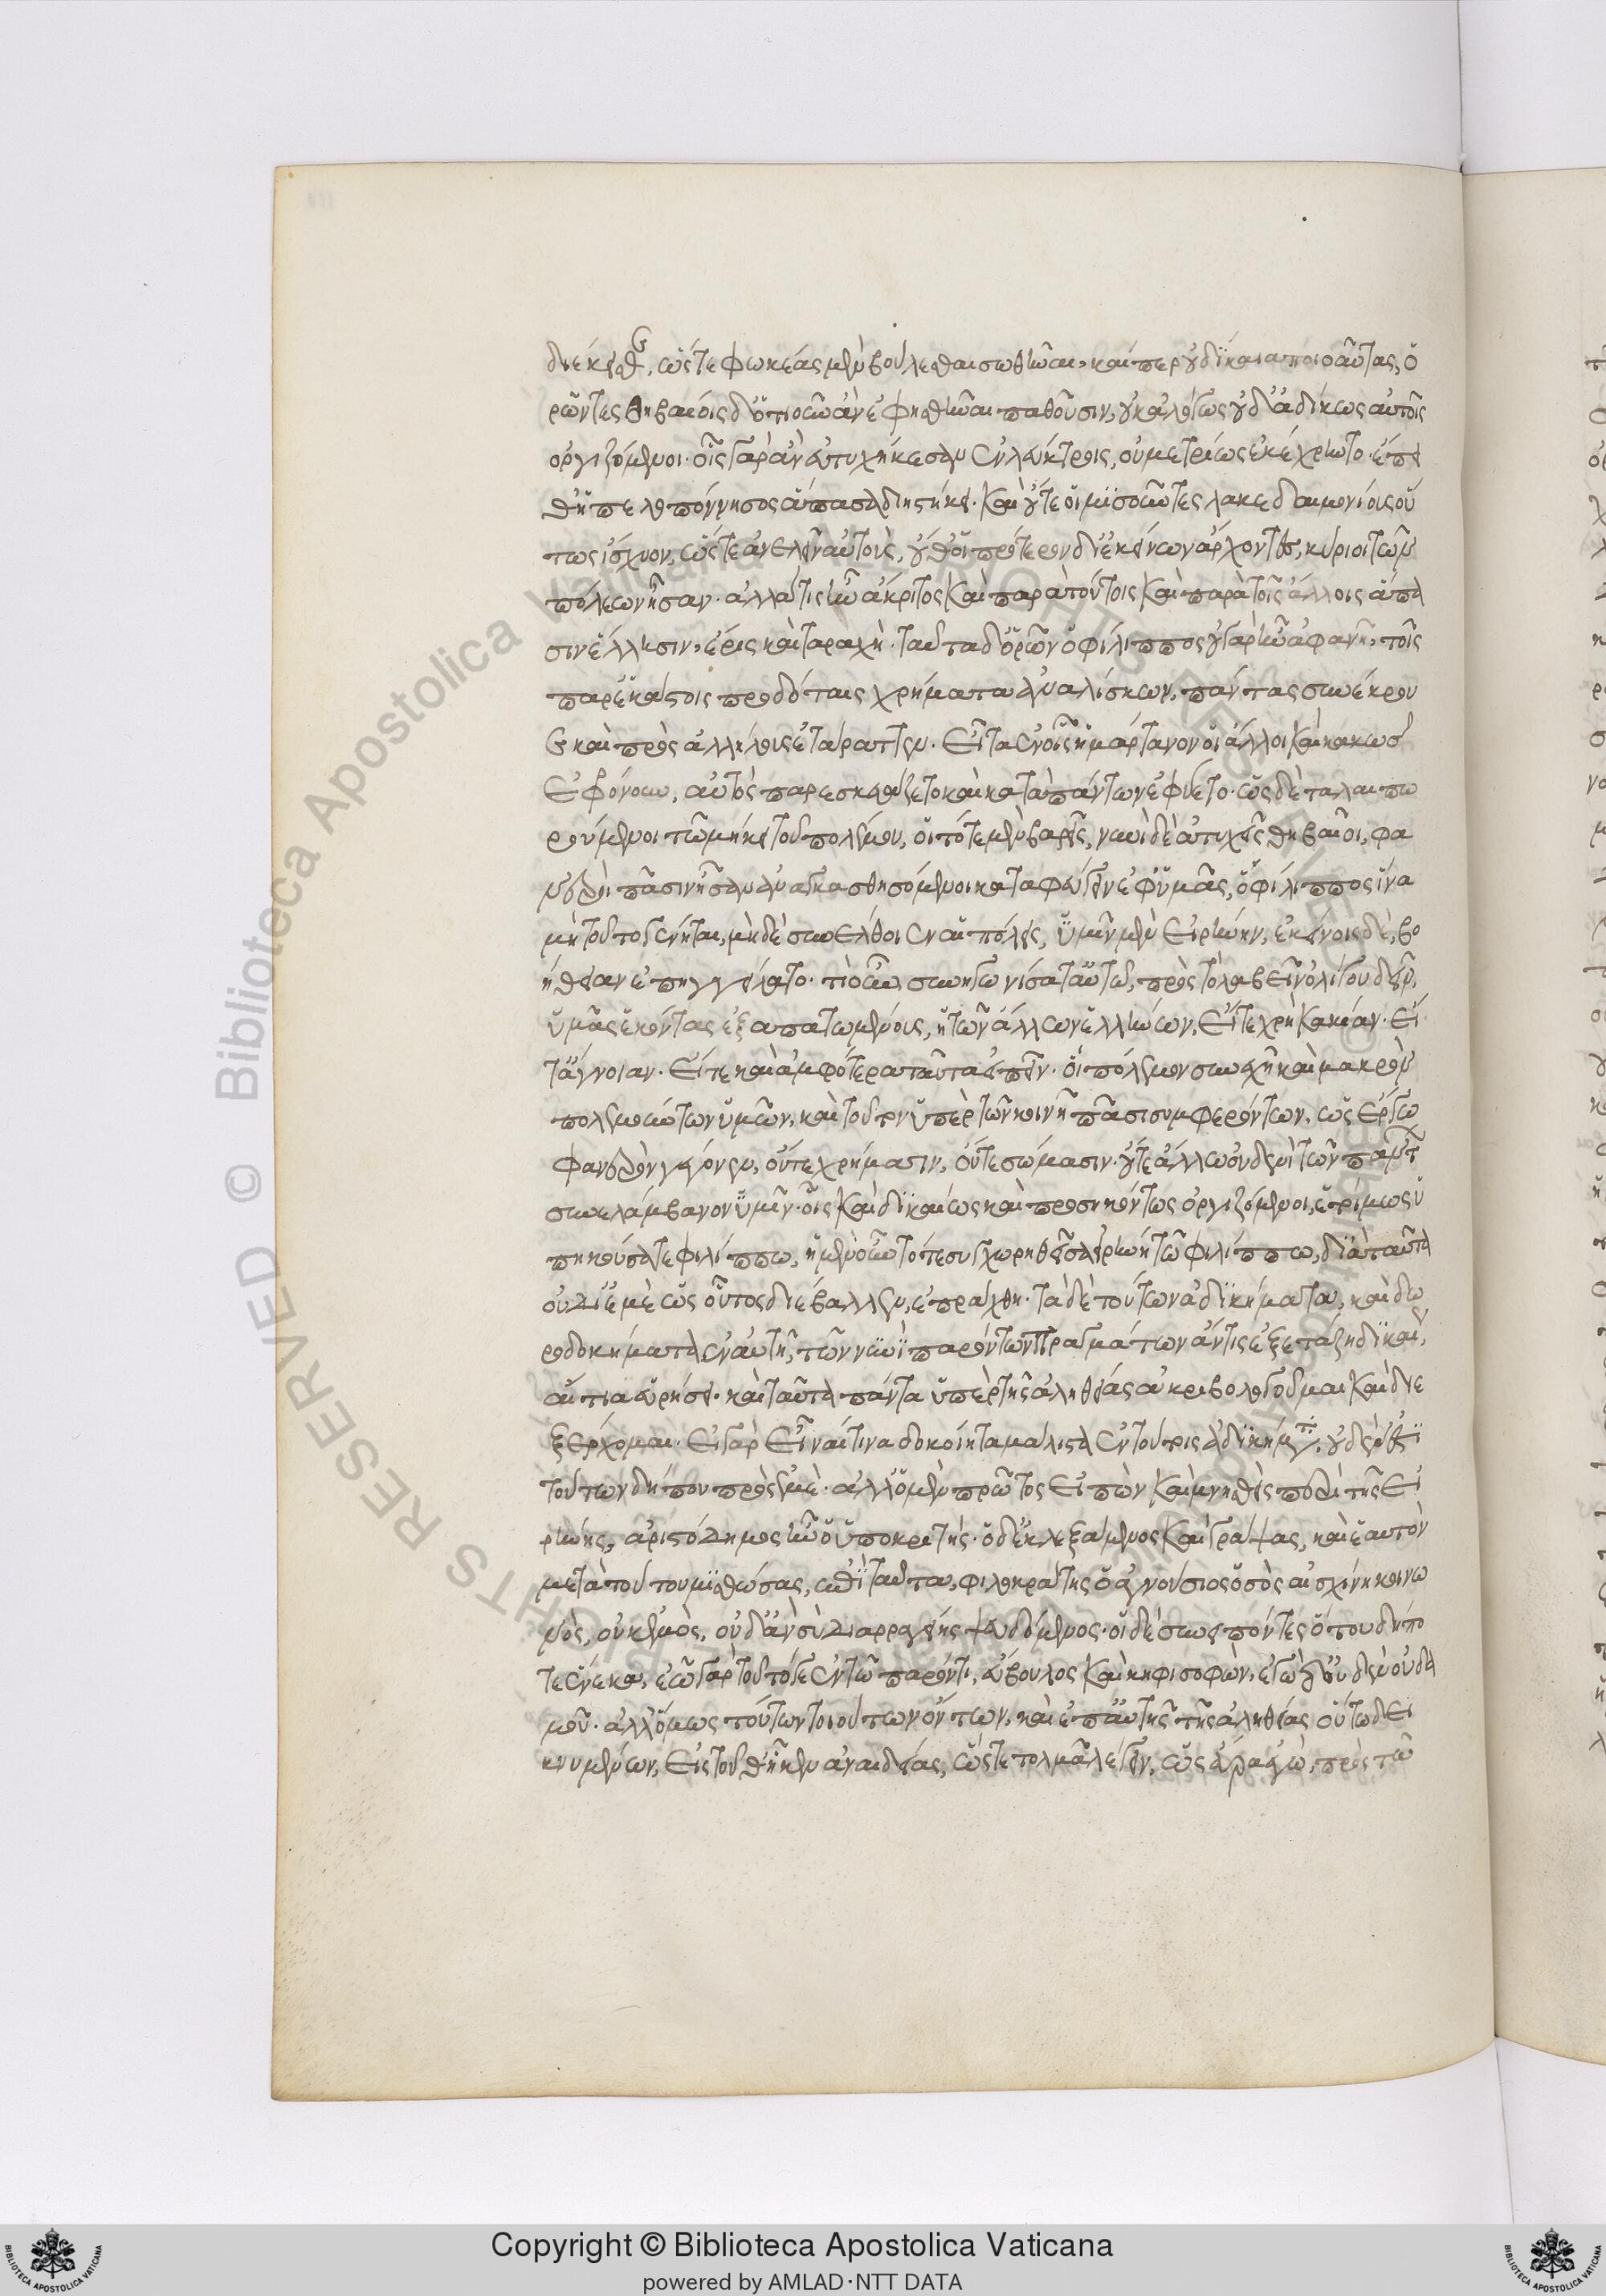 διέκεισθε, ὥστε φωκέας μὲν βούλεσθαι σωθῆναι, καίπερ οὐ δίκαια ποιοῦντας, ὁ
ρῶντες θηβαίοις δ' ὁτιοῦν ἂν ἐφησθῆναι παθοῦσιν, οὐκ ἀλόγως οὐδ' ἀδίκως αὐτοῖς
ὀργιζόμενοι· οἷς γὰρ ἂν εὐτυχήκεσαν ἐν λεύκτροις, οὐ μετρίως ἐκέχρηντο· ἔπει
θ' ἡ πελοπόννησος ἅπασα διειστήκει· καὶ οὔτε οἱ μισοῦντες λακεδαιμονίους οὕ
τως ἴσχυον, ὥστε ἀνελεῖν αὐτοὺς, οὔθ' οἱ πρότερον δι' ἐκείνων ἄρχοντες, κύριοι τῶν
πόλεων ἦσαν· ἀλλά τις ἦν ἄκριτος καὶ παρὰ τούτοις καὶ παρὰ τοῖς ἄλλοις ἅπα
σιν ἕλλησιν, ἔρις καὶ ταραχὴ· ταῦτα δ' ὁρῶν ὁ φίλιππος οὐ γὰρ ἦν ἀφανῆ, τοῖς
παρ' ἑκάστοις προδόταις χρήματα ἀναλίσκων, πάντας συνέκρου
ε καὶ πρὸς ἀλλήλους ἐτάραττεν· εἶτα ἐν οἷς ἡμάρτανον οἱ ἄλλοι καὶ κακῶς
ἐφρόνουν, αὐτὸς παρεσκευάζετο καὶ κατὰ πάντων ἐφύετο· ὡς δὲ ταλαιπω
ρούμενοι τῷ μήκει τοῦ πολέμου, οἱ τότε μὲν βαρεῖς, νυνὶ δὲ ἀτυχεῖς θηβαῖοι, φα
νεροὶ πᾶσιν ἦσαν ἀναγκασθησόμενοι καταφεύγειν ἐφ' ὑμᾶς, ὁ φίλιππος ἵνα
μὴ τοῦτο γένηται, μηδὲ συνέλθοιεν αἱ πόλεις, ὑμῖν μὲν εἰρήνην, ἐκείνοις δὲ, βο
ήθειαν ἐπηγγείλατο· τί οὖν συνηγωνίσατ' αὐτῷ, πρὸς τὸ λαβεῖν ὀλίγου δεῖν,
ὑμᾶς ἑκόντας ἐξαπατωμένους, ἡ τῶν ἄλλων ἑλλήνων, εἴτε χρὴ κακίαν· εἴ
τ' ἄγνοιαν· εἴτε καὶ ἀμφότερα ταῦτα εἰπεῖν· οἳ πόλεμον συνεχῆ καὶ μακρὸν
πολεμούντων ὑμῶν, καὶ τοῦτον ὑπὲρ τῶν κοινῇ πᾶσι συμφερόντων, ὡς ἔργῳ
φανερὸν γέγονεν, οὔτε χρήμασιν, οὔτε σώμασιν· οὔτε ἄλλῳ οὐδενὶ τῶν πάντων
συνελάμβανον ὑμῖν· οἷς καὶ δικαίως καὶ προσηκόντως ὀργιζόμενοι, ἑτοίμως ὑ
πηκούσατε φιλίππῳ, ἡ μὲν οὖν τότε συγχωρηθεῖσα εἰρήνη τῷ φιλίππῳ, διὰ ταῦτα
οὐ δι' ἐμὲ ὡς οὗτος διέβαλλεν, ἐπράχθη· τὰ δὲ τούτων ἀδικήματα, καὶ δω
ροδοκήματα ἐν αὐτῇ, τῶν νυνὶ παρόντων πραγμάτων ἄν τις ἐξετάζῃ δικαίως,
αἴτια εὑρήσει· καὶ ταῦτα πάντα ὑπὲρ τῆς ἀληθείας ἀκριβολογοῦμαι καὶ διε
ξέρχομαι· εἰ γὰρ εἶναί τινα δοκοίη τὰ μάλιστα ἐν τούτοις ἀδικήματα, οὐδέν ἐστι
τούτων δήπου πρὸς ἐμὲ· ἀλλ' ὁ μὲν πρῶτος εἰπὼν καὶ μνησθεὶς περὶ τῆς εἰ
ρήνης, ἀριστόδημος ἦν ὁ ὑποκριτής· ὁ δ' ἐκλεξάμενος καὶ γράψας, καὶ ἑαυτὸν
μετὰ τούτου μισθώσας, ἐπὶ ταῦτα, φιλοκράτης ὁ ἁγνούσιος ὁ σὸς αἰσχίνη κοινω
νὸς, οὐκ ἐμὸς, οὐδ' ἂν σὺ διαρραγῇς ψευδόμενος· οἱ δὲ συνειπόντες ὅτου δήπο
τε ἕνεκα, ἐῶ γὰρ τοῦτό γε ἐν τῷ παρόντι, εὔβουλος καὶ κηφισοφῶν, ἐγὼ δ' οὐδὲν οὐδα
μοῦ· ἀλλ' ὅμως τούτων τοιούτων ὄντων, καὶ ἐπ' αὐτῆς τῆς ἀληθείας οὕτω δει
κνυμένων, εἰς τοῦθ' ἧκεν ἀναιδείας, ὥστε τολμᾶ λέγειν, ὡς ἄρα ἐγὼ, πρὸς τῷ